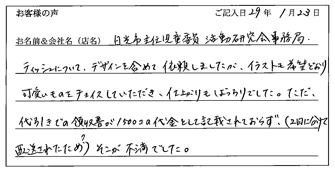 お客様の声 ご記入日29年1月23日
お名前&会社名(店名) 日光市主任児童委員 活動研究会事務局.
ティッシュについて、デザインを含めて依頼しましたが、イラストも希望どおり
可愛いものをチョイスしていただき、仕上がりもばっちりでした。ただ、
代引きでの領収書が1500コの代金として記載されておらず、(2回に分けて
配送されたため?) そこが不満でした。